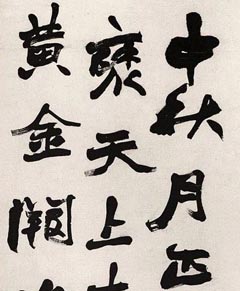 中秋月正
天上
黄金闕